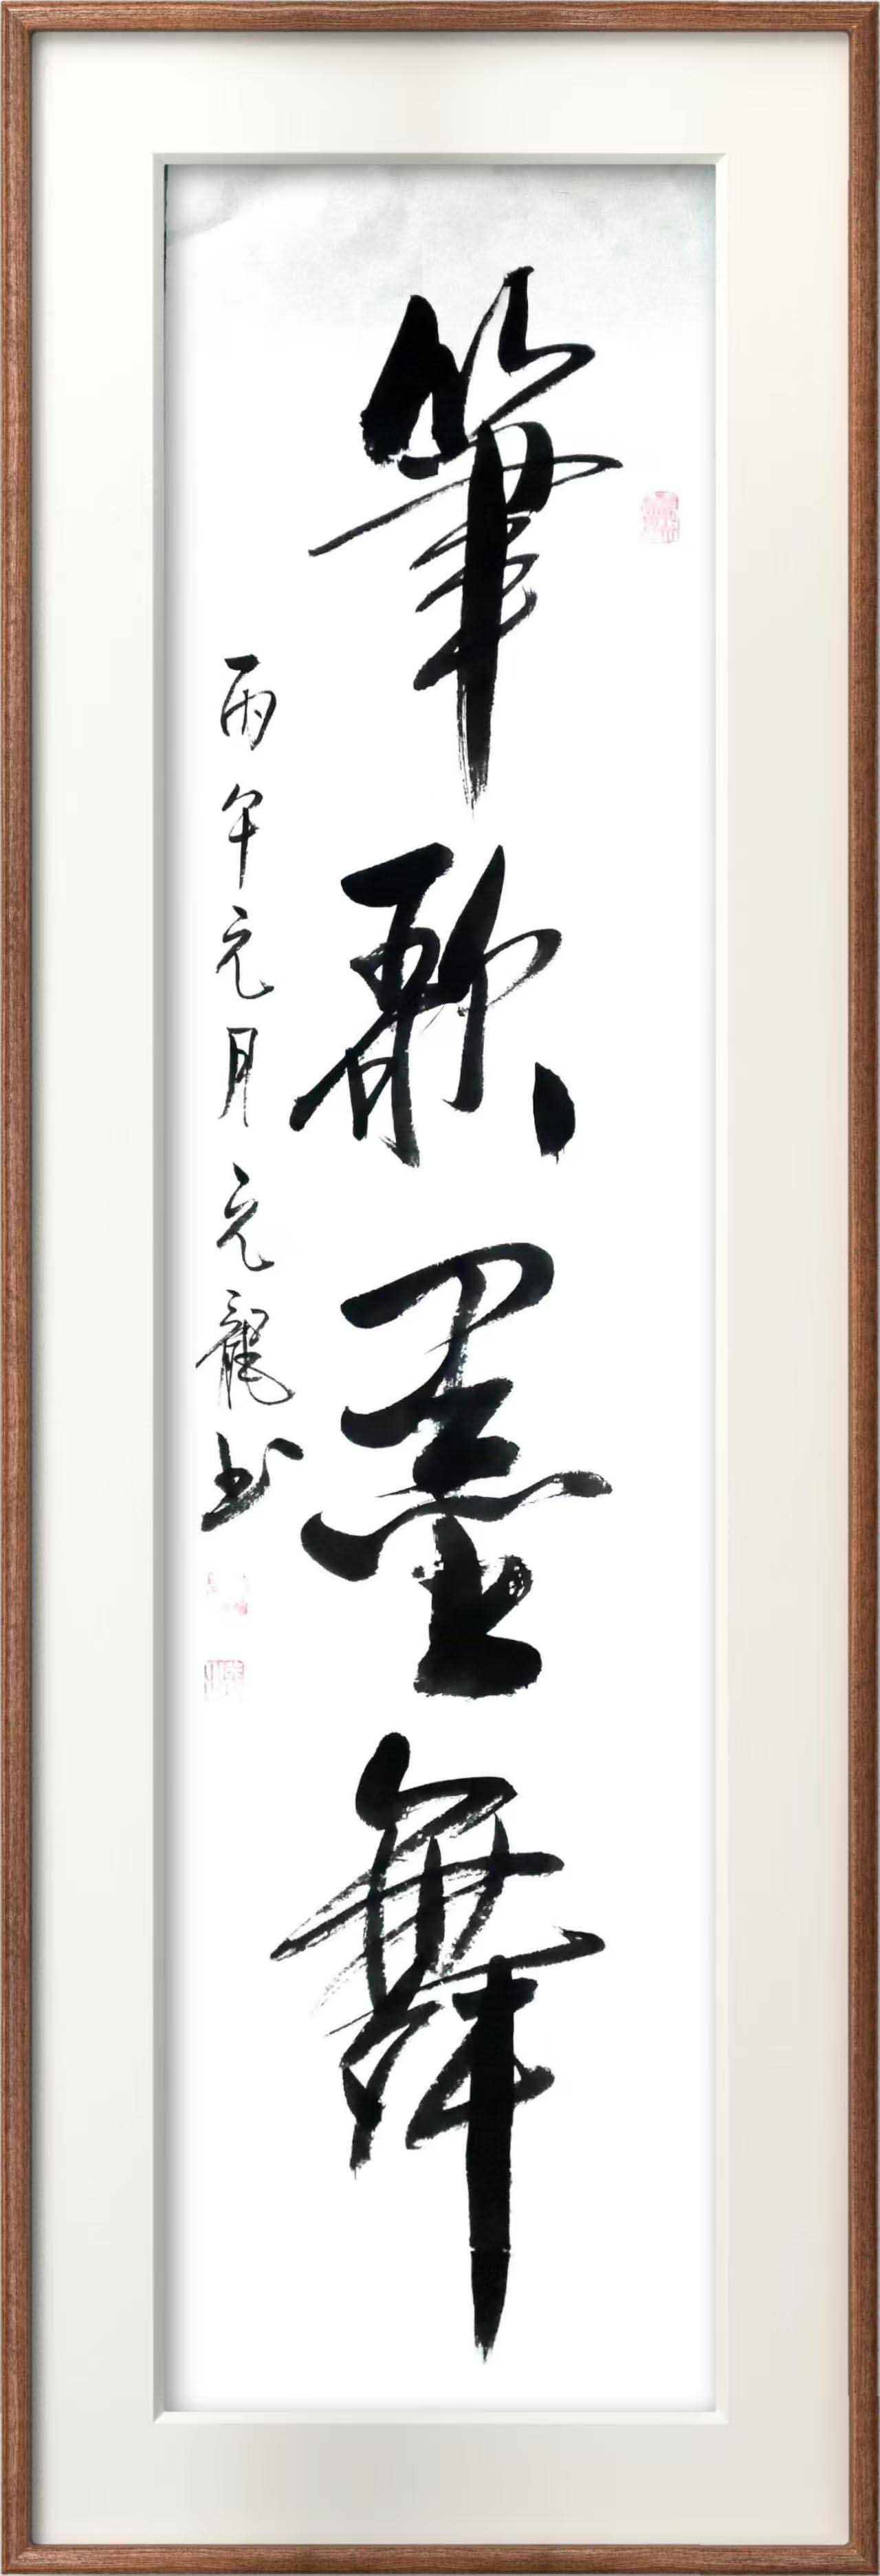 筆歌墨舞
丙午元月元龍书